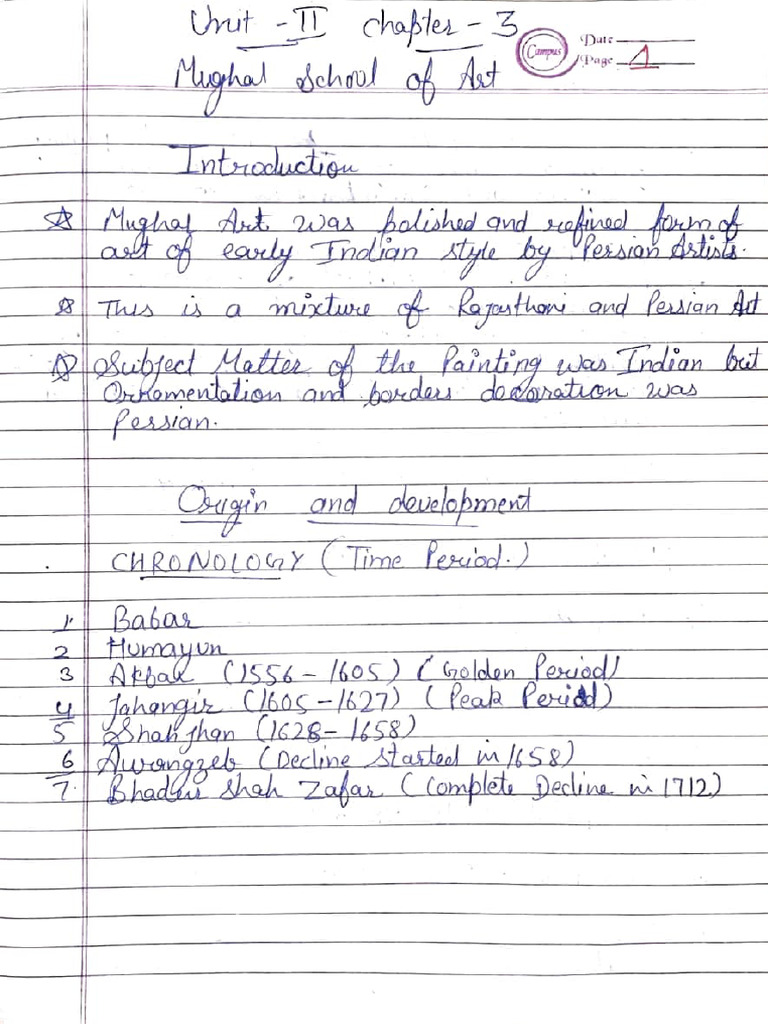 Unit - II Chapter - 3
Campus
Date
Page 1
Mughal School of Art
Introduction
☆ Mughal Art was polished and refined form of
art of early Indian style by Persian Artists.
☆ This is a mixture of Rajasthani and Persian Art
☆ Subject Matter of the Painting was Indian but
Ornamentation and borders decoration was
Persian.
Origin and development
CHRONOLOGY (Time Period.)
1. Babar
2 Humayun
3 Akbar (1556 - 1605) (Golden Period)
4 Jahangir (1605 - 1627) (Peak Period)
5 Shahjhan (1628 - 1658)
6 Aurangzeb (Decline started in 1658)
7. Bhadur Shah Zafar (Complete Decline in 1712)